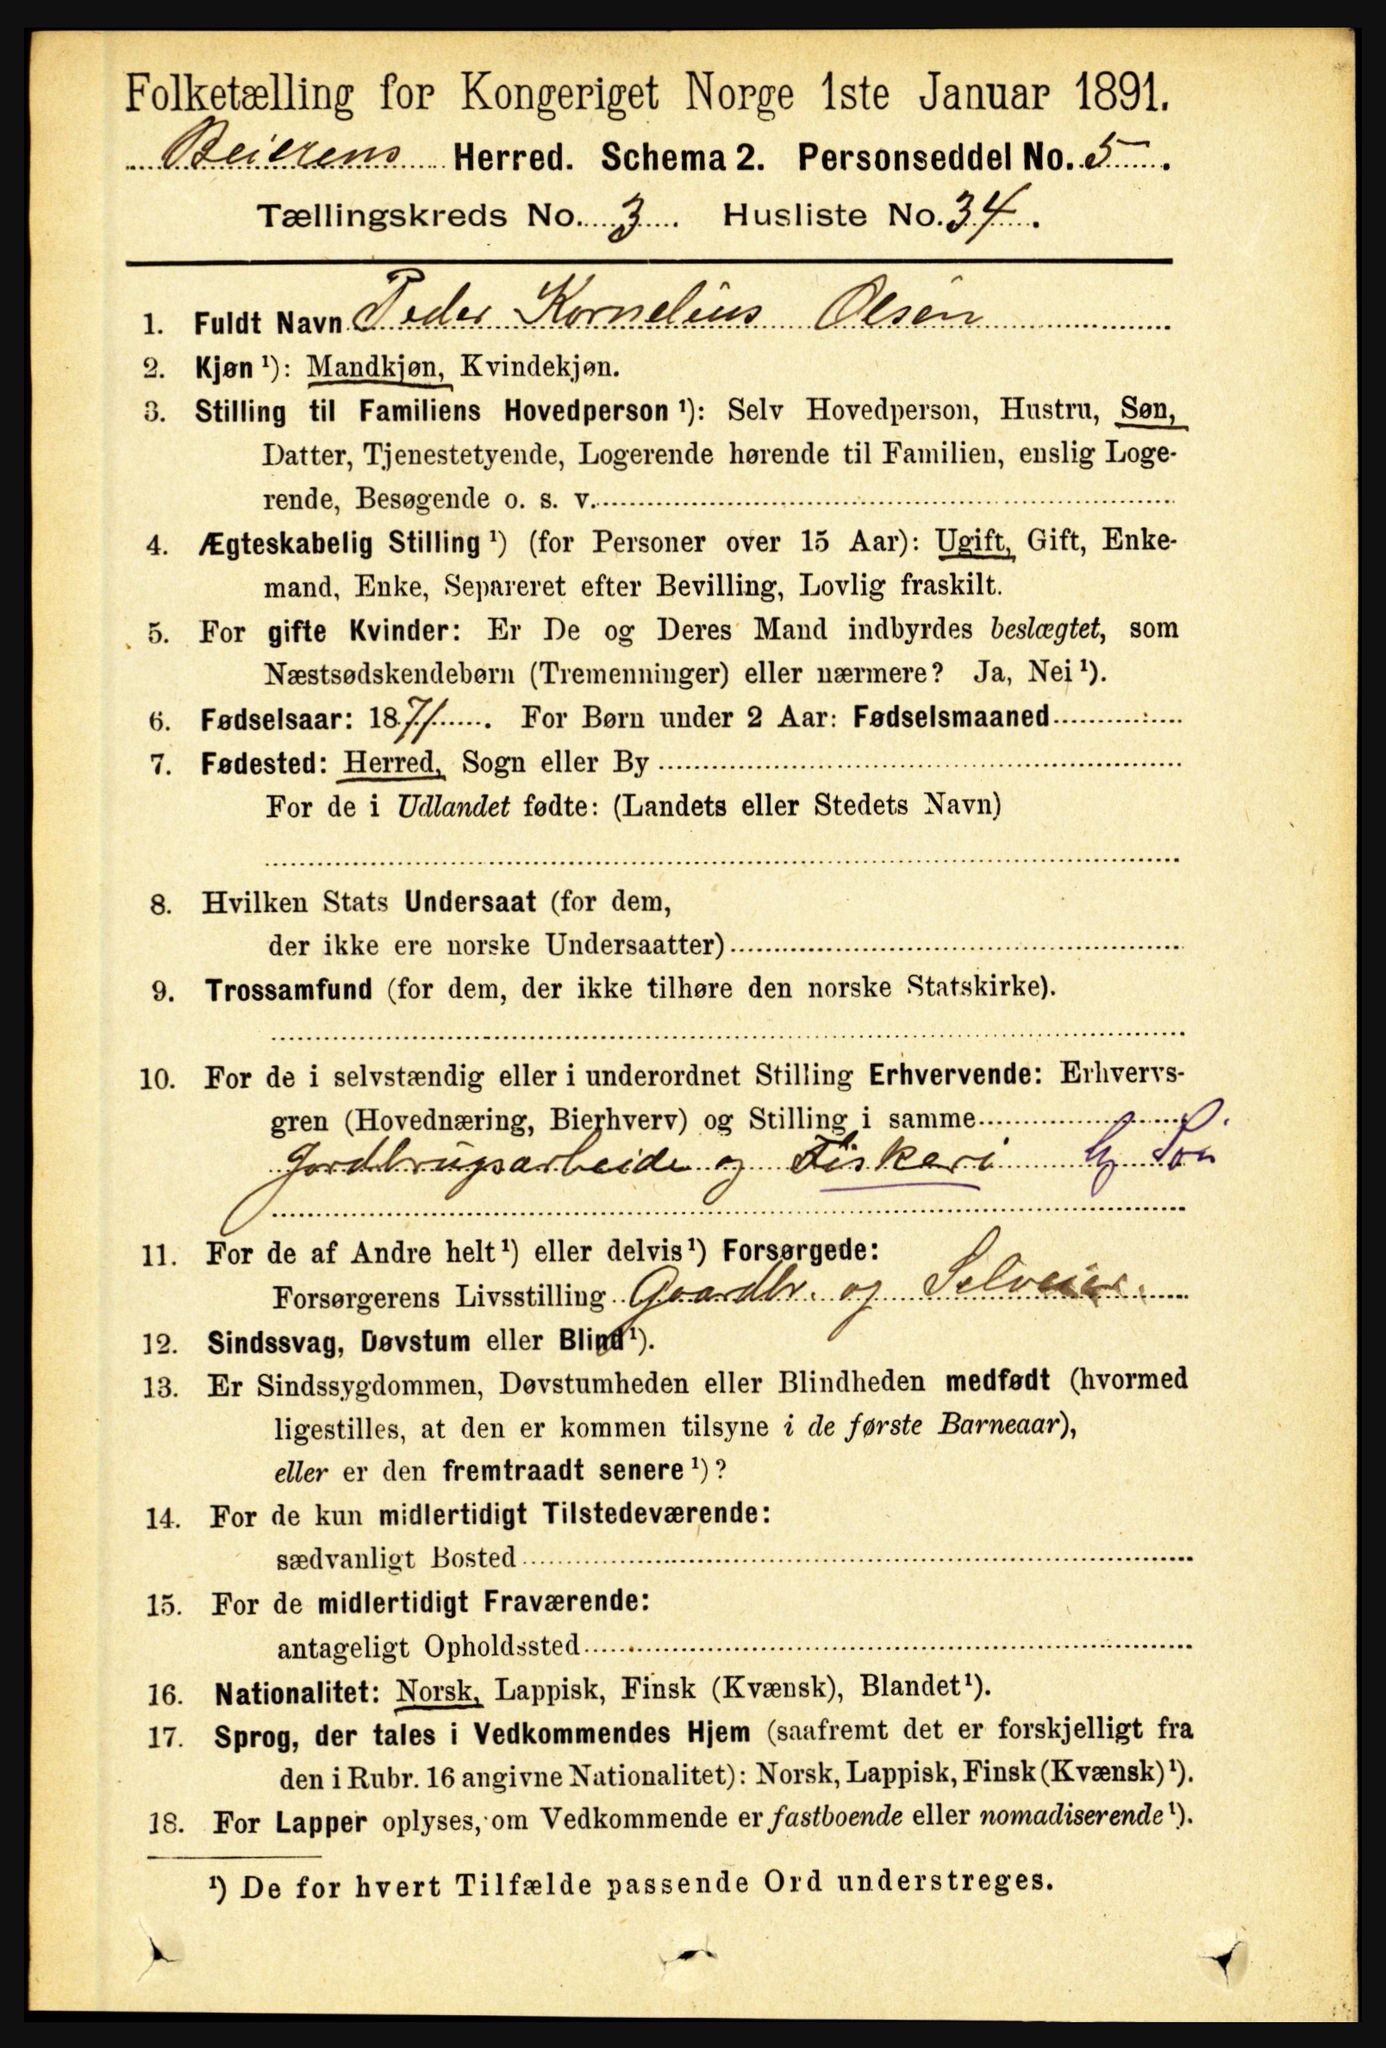 Folketælling for Kongeriget Norge 1ste Januar 1891.
Beierens Herred. Schema 2. Personseddel No. 5.
Tællingskreds No. 3. Husliste No. 34.
1. Fuldt Navn Peder Kornelius Olsen
2. Kjøn ¹): Mandkjøn, Kvindekjøn.
3. Stilling til Familiens Hovedperson ¹): Selv Hovedperson, Hustru, Søn,
Datter, Tjenestetyende, Logerende hørende til Familien, enslig Loge-
rende, Besøgende o. s. v.
4. Ægteskabelig Stilling ¹) (for Personer over 15 Aar): Ugift, Gift, Enke-
mand, Enke, Separeret efter Bevilling, Lovlig fraskilt.
5. For gifte Kvinder: Er De og Deres Mand indbyrdes beslægtet, som
Næstsødskendebørn (Tremenninger) eller nærmere? Ja, Nei ¹).
6. Fødselsaar: 1871. For Børn under 2 Aar: Fødselsmaaned
7. Fødested: Herred, Sogn eller By
For de i Udlandet fødte: (Landets eller Stedets Navn)
8. Hvilken Stats Undersaat (for dem,
der ikke ere norske Undersaatter)
9. Trossamfund (for dem, der ikke tilhøre den norske Statskirke).
10. For de i selvstændig eller i underordnet Stilling Erhvervende: Erhvervs-
gren (Hovednæring, Bierhverv) og Stilling i samme
Jordbrugsarbeide og Fiskeri
11. For de af Andre helt ¹) eller delvis ¹) Forsørgede:
Forsørgerens Livsstilling Gaardbr. og Selveier.
12. Sindssvag, Døvstum eller Blind ¹).
13. Er Sindssygdommen, Døvstumheden eller Blindheden medfødt (hvormed
ligestilles, at den er kommen tilsyne i de første Barneaar),
eller er den fremtraadt senere ¹)?
14. For de kun midlertidigt Tilstedeværende:
sædvanligt Bosted
15. For de midlertidigt Fraværende:
antageligt Opholdssted
16. Nationalitet: Norsk, Lappisk, Finsk (Kvænsk), Blandet ¹).
17. Sprog, der tales i Vedkommendes Hjem (saafremt det er forskjelligt fra
den i Rubr. 16 angivne Nationalitet): Norsk, Lappisk, Finsk (Kvænsk) ¹).
18. For Lapper oplyses, om Vedkommende er fastboende eller nomadiserende ¹).
¹) De for hvert Tilfælde passende Ord understreges.